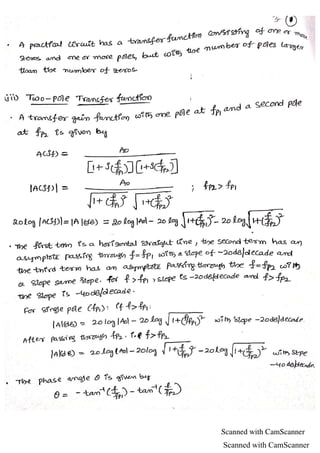 • A practical circuit has a transfer function consisting of one or more
zeros and one or more poles, but with the number of poles larger
than the number of zeros.
iii) Two-pole Transfer function
• A transfer gain function with one pole at fp1 and a second pole
at fp2 is given by
A(Jf) = Ao / [1+J(f/fp1)][1+J(f/fp2)]
|A(Jf)| = Ao / √1+(f/fp1)² √1+(f/fp2)² ; fp2>fp1
20 log |A(Jf)| = |A|(dB) = 20 log |Ao| - 20 log √1+(f/fp1)² - 20 log √1+(f/fp2)²
• The first term is a horizontal straight line, the second term has an
asymptote passing through f=fp1 with a slope of -20dB/decade and
the third term has an asymptote passing through the f=fp2 with
a slope same slope. For f>fp1, slope is -20dB/decade and f>fp2
the slope is -40dB/decade.
For single pole (fp1): if f>fp1:
|A|(dB) = 20 log |Ao| - 20 log √1+(f/fp1)² with slope -20dB/decade.
After passing through fp2. i.e f>fp2
|A|(dB) = 20 log |Ao| - 20 log √1+(f/fp1)² - 20 log √1+(f/fp2)² with slope
-40dB/decade
• The phase angle θ is given by
θ = - tan⁻¹(f/fp1) - tan⁻¹(f/fp2)
Scanned with CamScanner
Scanned with CamScanner